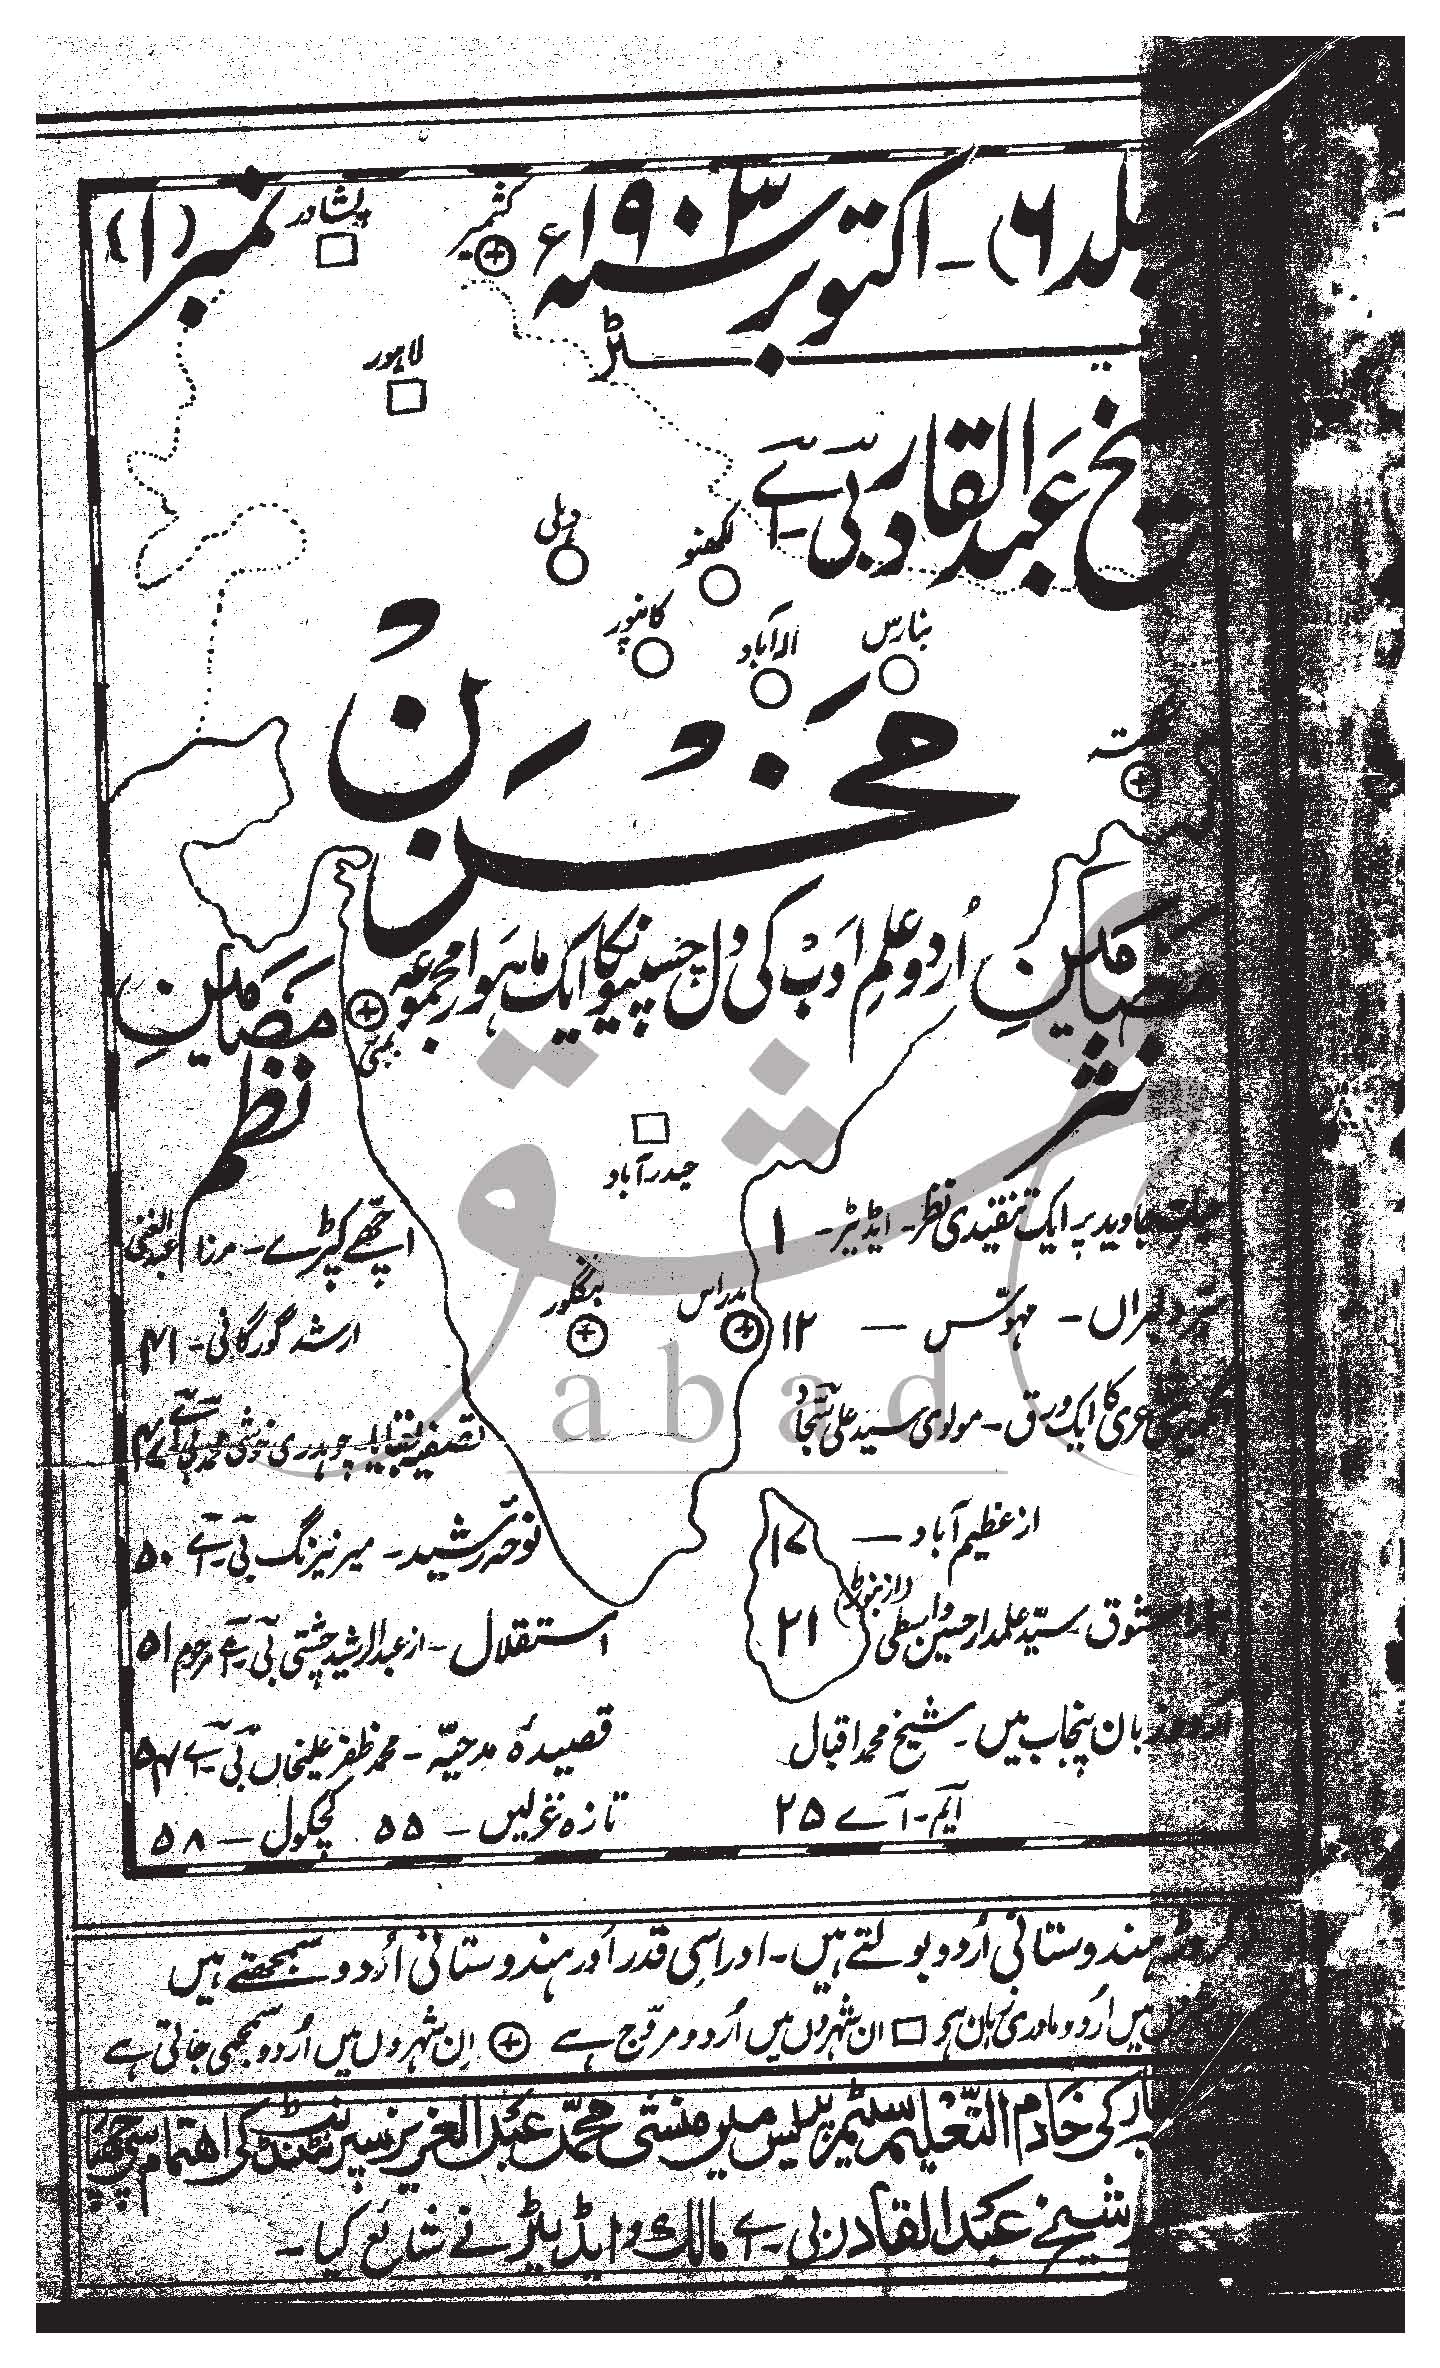 جلد (۶) - اکتوبر سنہ ۱۹۰۳ء نمبر (۱)
کشمیر
پشاور
لاہور
شیخ عبدالقادر بی۔اے
دہلی
لکھنو
کانپور
الہ آباد
بنارس
مخزن
اُردو علم ادب کی دلچسپیوں کا ایک ماہوار مجموعہ
بمبئی
حیدرآباد
بنگلور
مدراس
مضامین نثر
حیات جاوید پر ایک تنقیدی نظر - ایڈیٹر - ۱
دلبراں - مہوّس — ۱۲
شاعری کا ایک ورق - مولوی سید علی سجاد
از عظیم آباد — ۱۷
معشوق - سیّد علمدار حسین واسطی ۲۱
اردو زبان پنجاب میں - شیخ محمد اقبال
ایم - اے ۲۵
مضامین نظم
اچھے کپڑے - مرزا عبدالغنی
ارشد گورگانی - ۴۱
چوہدری خوشی محمد بی اے
نوحہ رشید - میر نیرنگ بی - اے ۵۰
استقلال - از عبدالرشید چشتی بی - اے مرحوم ۵۱
قصیدہ مدحیّہ - محمد ظفر علیخاں بی - اے ۵۴
تازہ غزلیں - ۵۵ کچکول - ۵۸
کروڑ ہندوستانی اُردو بولتے ہیں - اور اسی قدر اور ہندوستانی اُردو سمجھتے ہیں
میں اُردو مادری زبان ہو □ ان شہروں میں اُردو مروّج ہے ⊕ اِن شہروں میں اُردو سمجھی جاتی ہے
کی خادم التعلیم سٹیم پریس میں منشی محمد عبدالعزیز سپرنٹنڈنٹ کی اہتمام سی چھپا
شیخ عبدالقادر بی - اے مالک و ایڈیٹر نے شایع کیا -
abad